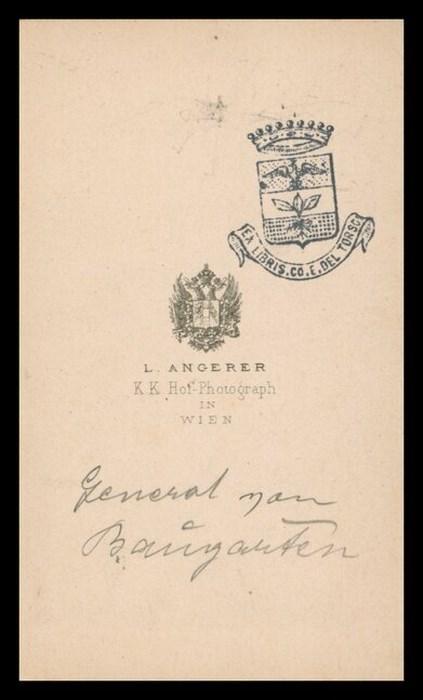 EX LIBRIS. CO. E. DEL TORSO
L. ANGERER
K. K. Hof-Photograph
IN
WIEN
General von
Baugarten